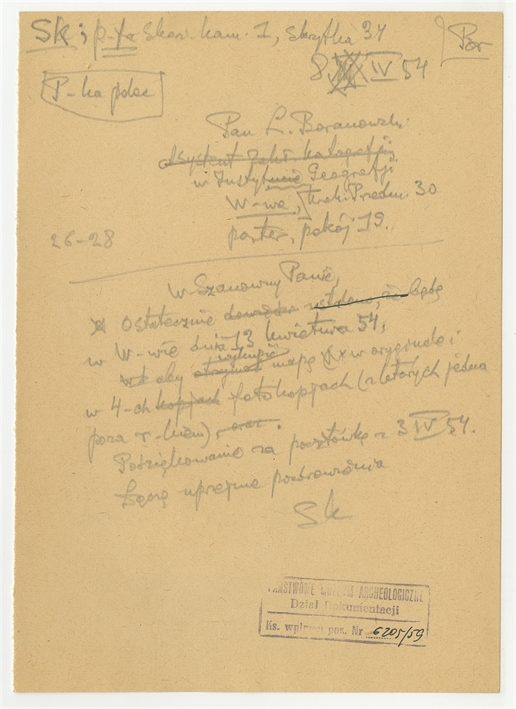 Sk i p-ta Skar. kam. 1, skrytka 34
Bar
8 IV 54
P-ka polec
Pan L. Baranowski
Asystent Zakł. Kartografji
w Instytucie Geografji
W-wa, Krak. Przedm. 30
parter, pokój 19.
26-28
W-Szanowny Panie,
Ostatecznie będę
w W-wie dnia 13 kwietnia 54,
aby otrzymać wykupić mapę w oryginale i
w 4-ch kopjach fotokopjach (z których jedna
poza r-kiem), oraz
Podziękowanie za pocztówkę z 3 IV 54.
Łączę uprzejme pozdrowienia
Sk
PAŃSTWOWE MUZEUM ARCHEOLOGICZNE
Dział Dokumentacji
Ks. wpływu poz. Nr 6205/59